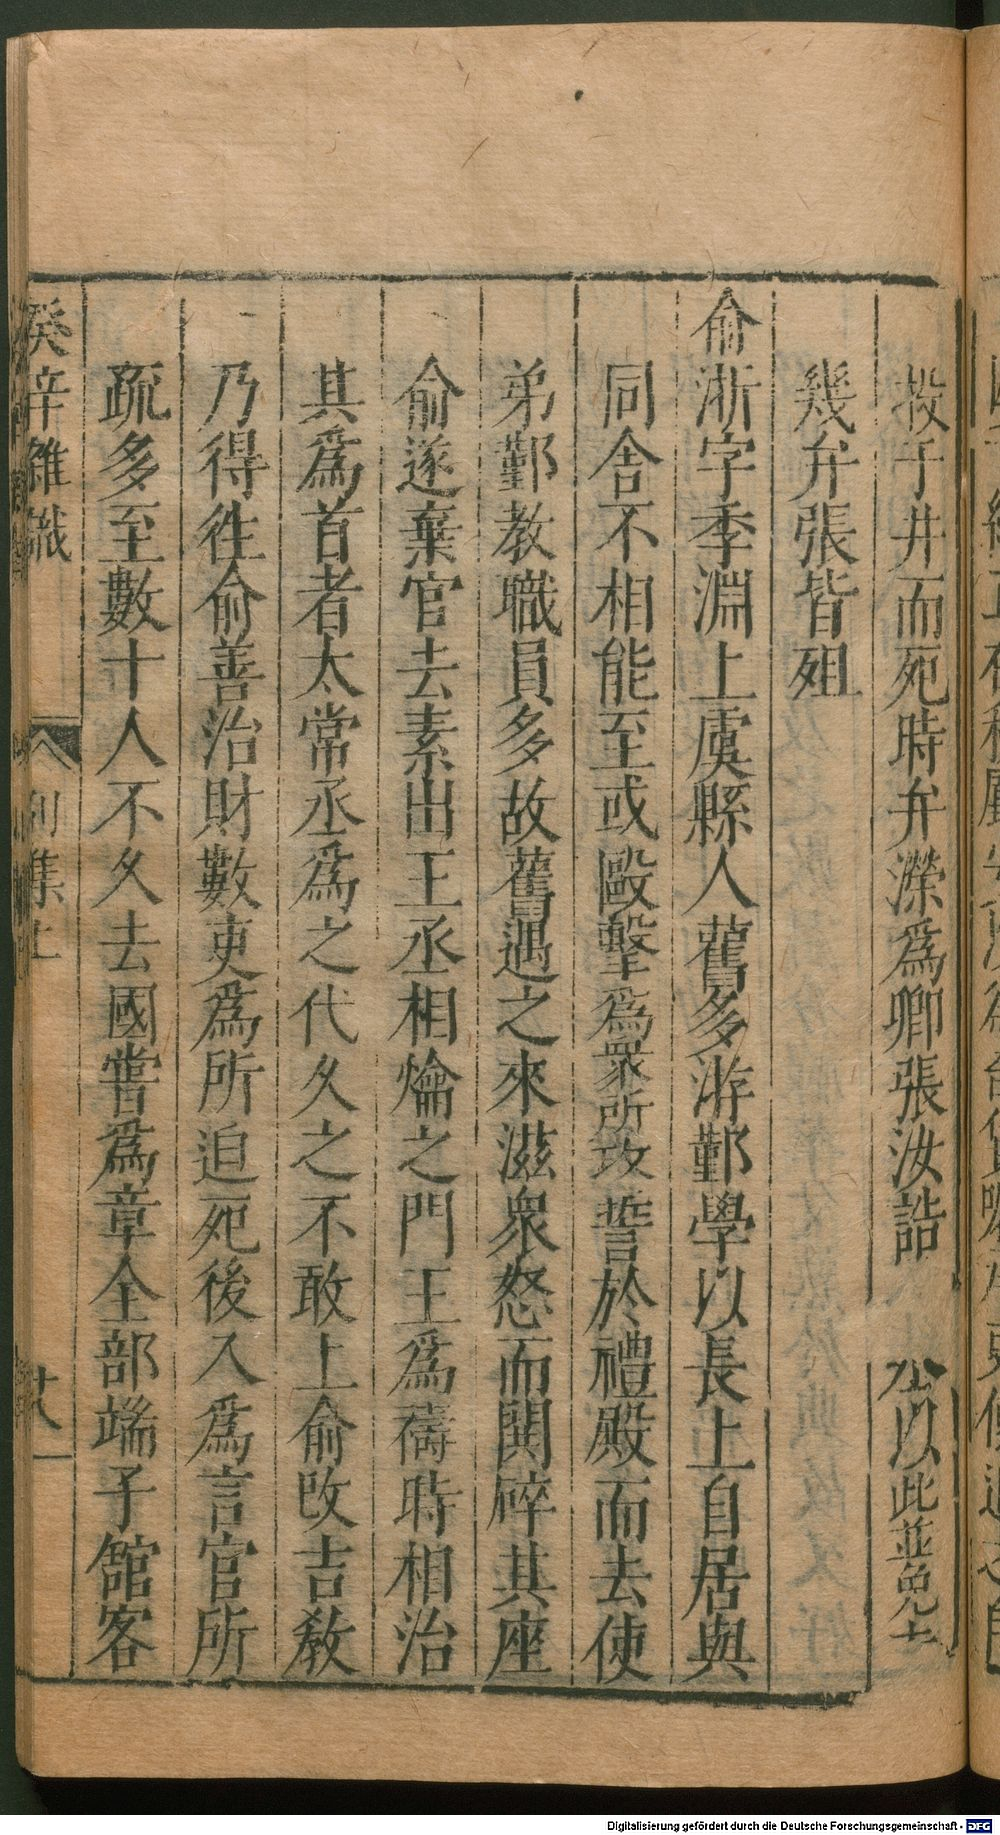 投于井而死時弁濚爲卿張汝誥 以此並免去
幾弁張皆殂
俞淅字季淵上虞縣人舊多游鄞學以長上自居與
同舍不相能至或毆擊爲衆所攻誓於禮殿而去使
弟鄞教職員多故舊遇之來滋衆怒而鬨碎其座
俞遂棄官去素出王丞相爚之門王爲禱時相治
其爲首者太常丞爲之代久之不敢上俞改吉教
乃得徃俞善治財數吏爲所迫死後入爲言官所
疏多至數十人不久去國嘗爲章全部端子舘客
癸辛雜識 別集上 十八
Digitalisierung gefördert durch die Deutsche Forschungsgemeinschaft - DFG